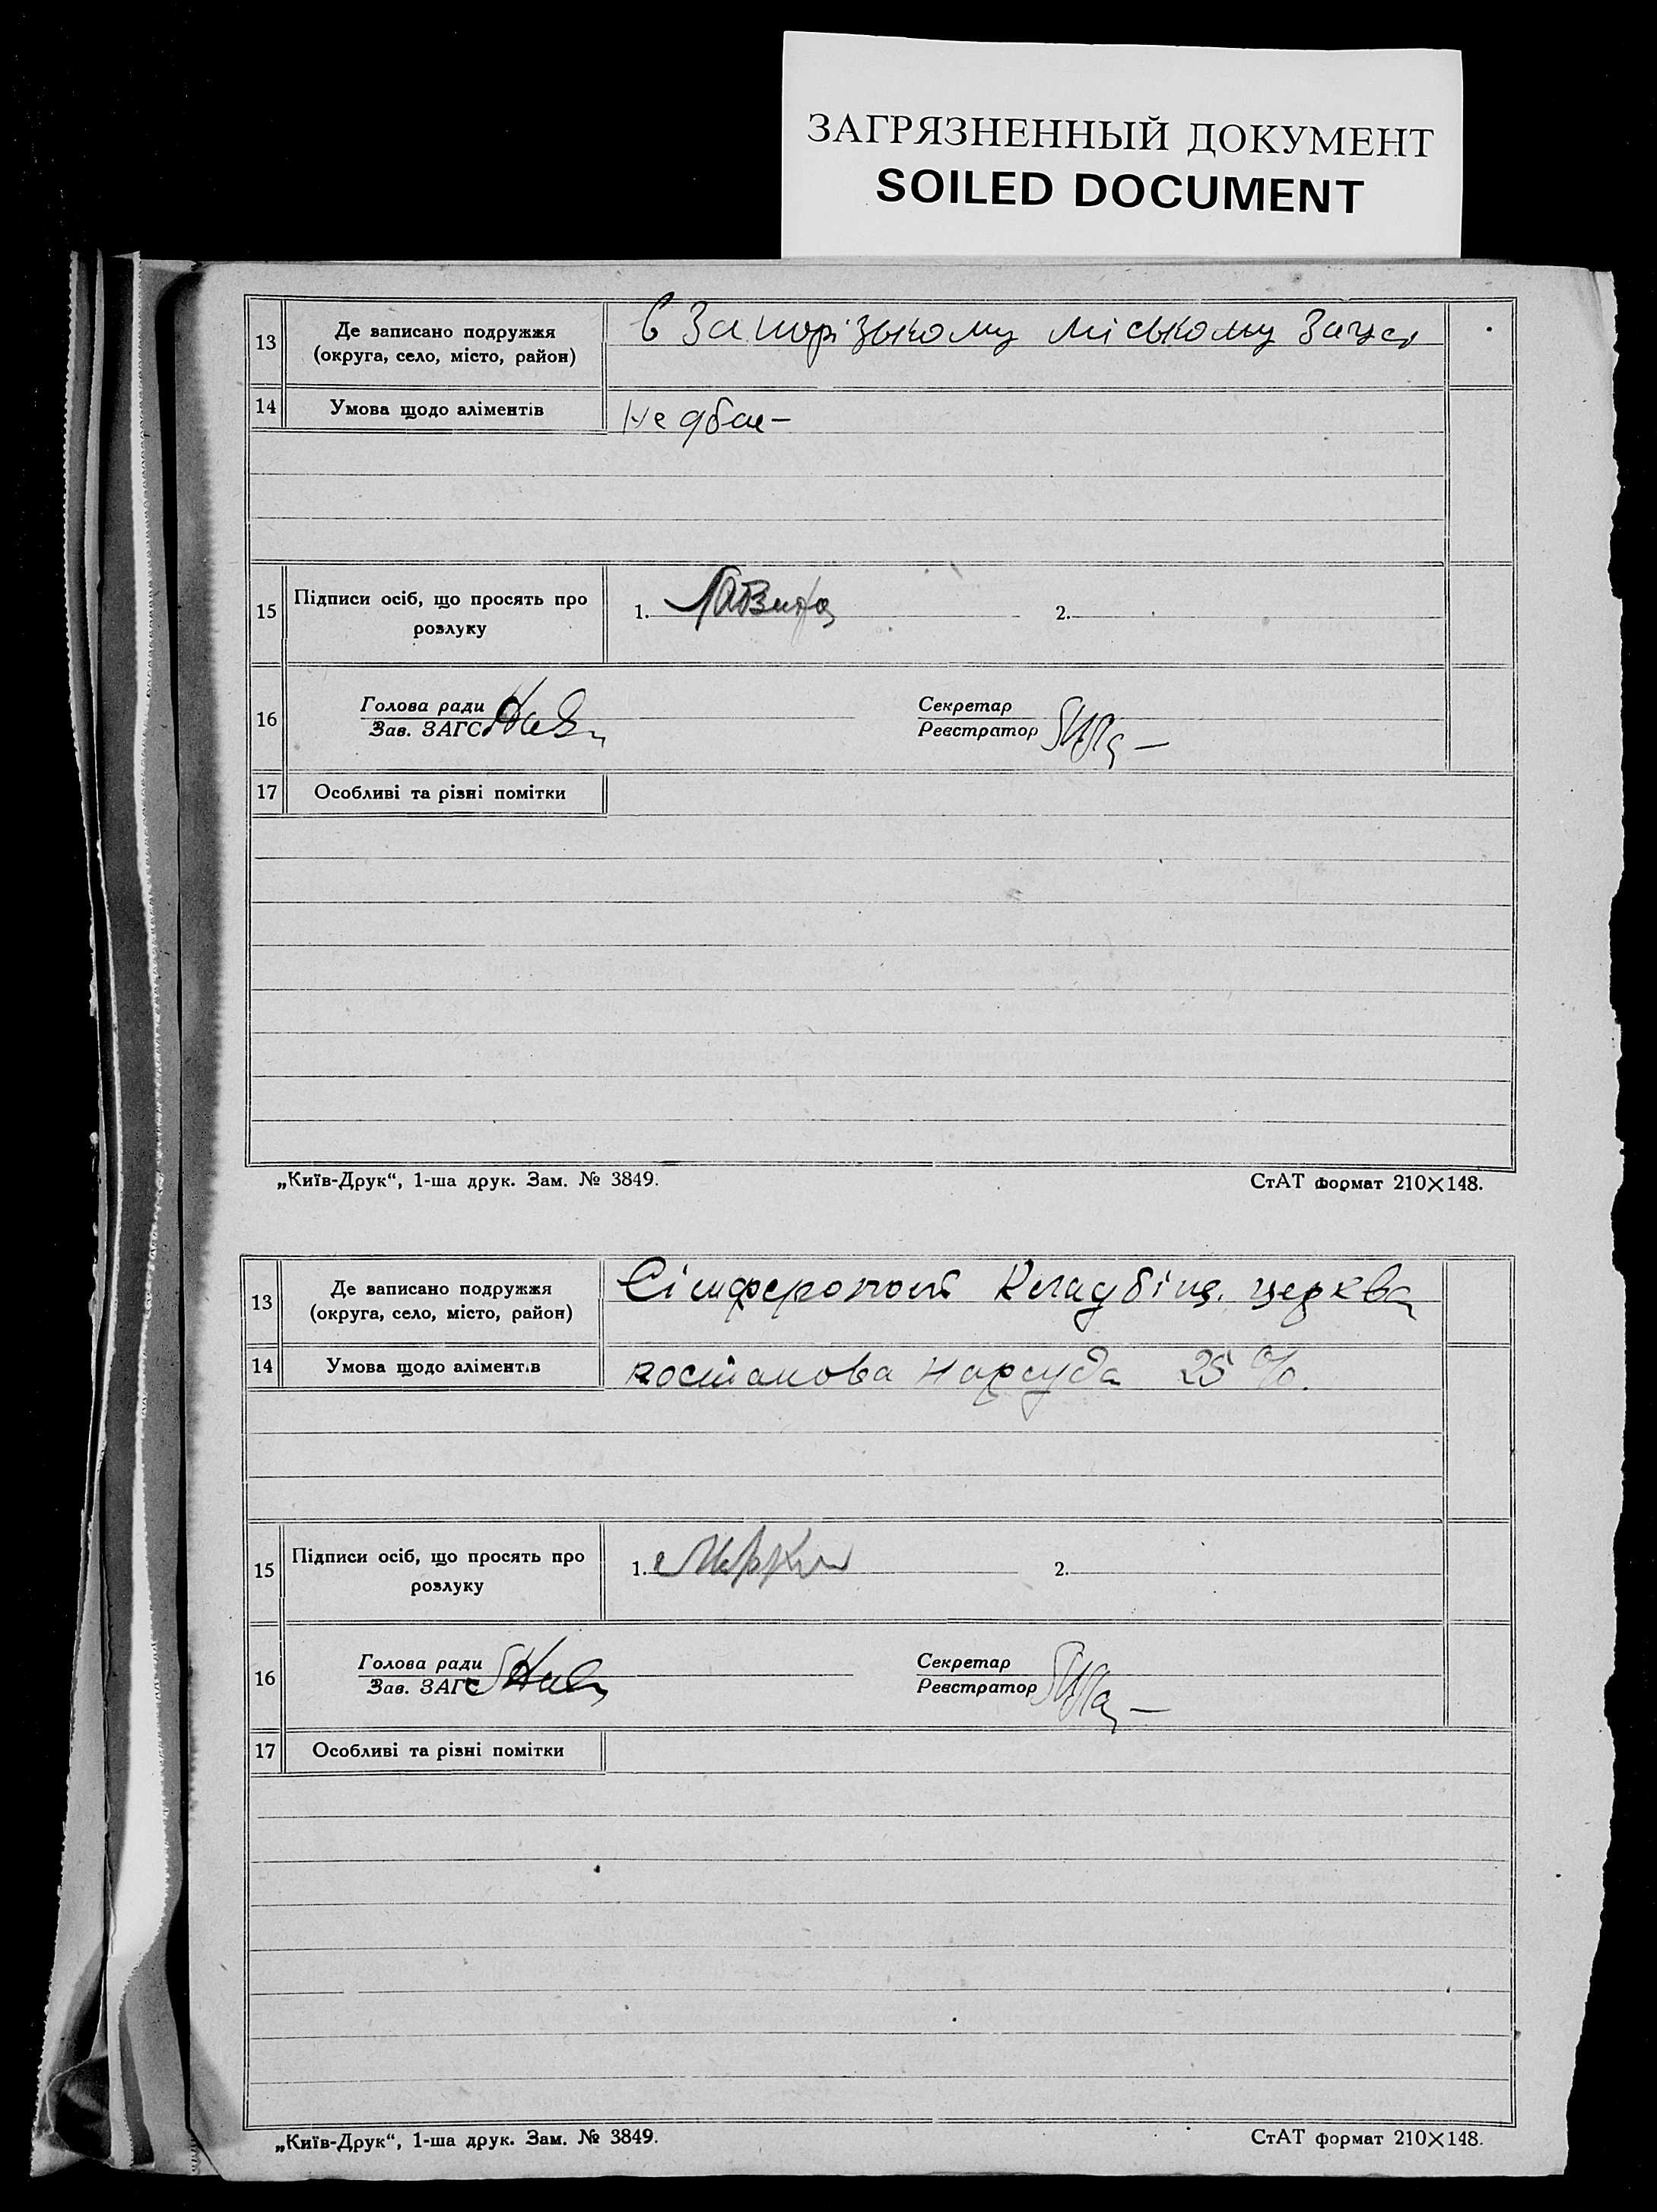 ЗАГРЯЗНЕННЫЙ ДОКУМЕНТ
SOILED DOCUMENT
13 Де записано подружжя (округа, село, місто, район)
в Запорізькому міському Загсі
14 Умова щодо аліментів
Не дбає –
15 Підписи осіб, що просять про розлуку
1. 2.
16 Голова ради
Зав. ЗАГС
Секретар
Реєстратор
17 Особливі та різні помітки
„Київ-Друк“, 1-ша друк. Зам. № 3849.
СтАТ формат 210×148.
13 Де записано подружжя (округа, село, місто, район)
церква
14 Умова щодо аліментів
постанова Нарсуда 25%.
15 Підписи осіб, що просять про розлуку
1. 2.
16 Голова ради
Зав. ЗАГС
Секретар
Реєстратор
17 Особливі та різні помітки
„Київ-Друк“, 1-ша друк. Зам. № 3849.
СтАТ формат 210×148.